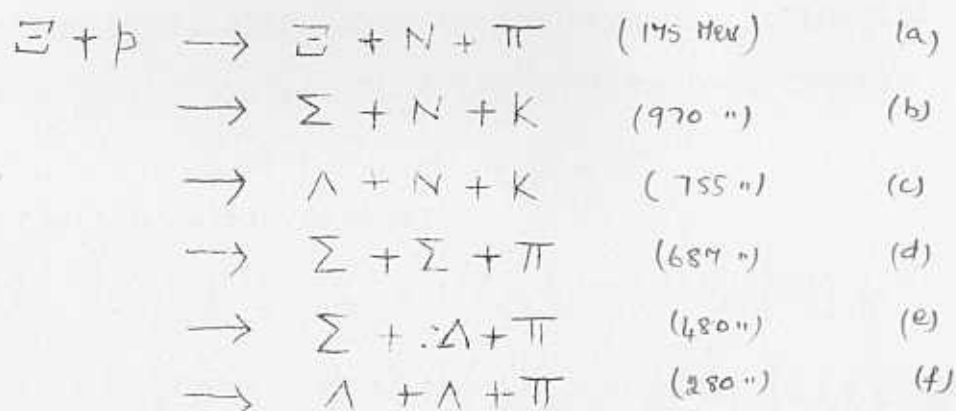 Ξ + p ⟶ Ξ + N + π (145 Mev) (a)
⟶ Σ + N + K (970 ") (b)
⟶ Λ + N + K (755 ") (c)
⟶ Σ + Σ + π (687 ") (d)
⟶ Σ + Λ + π (480 ") (e)
⟶ Λ + Λ + π (280 ") (f)